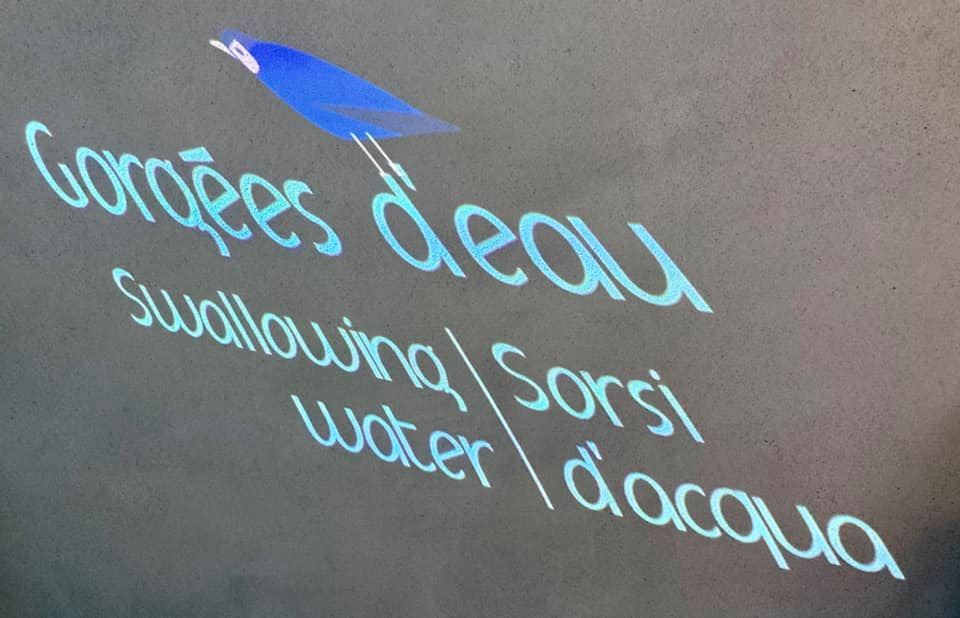 Gorgées d'eau
Swallowing
water
Sorsi
d'acqua